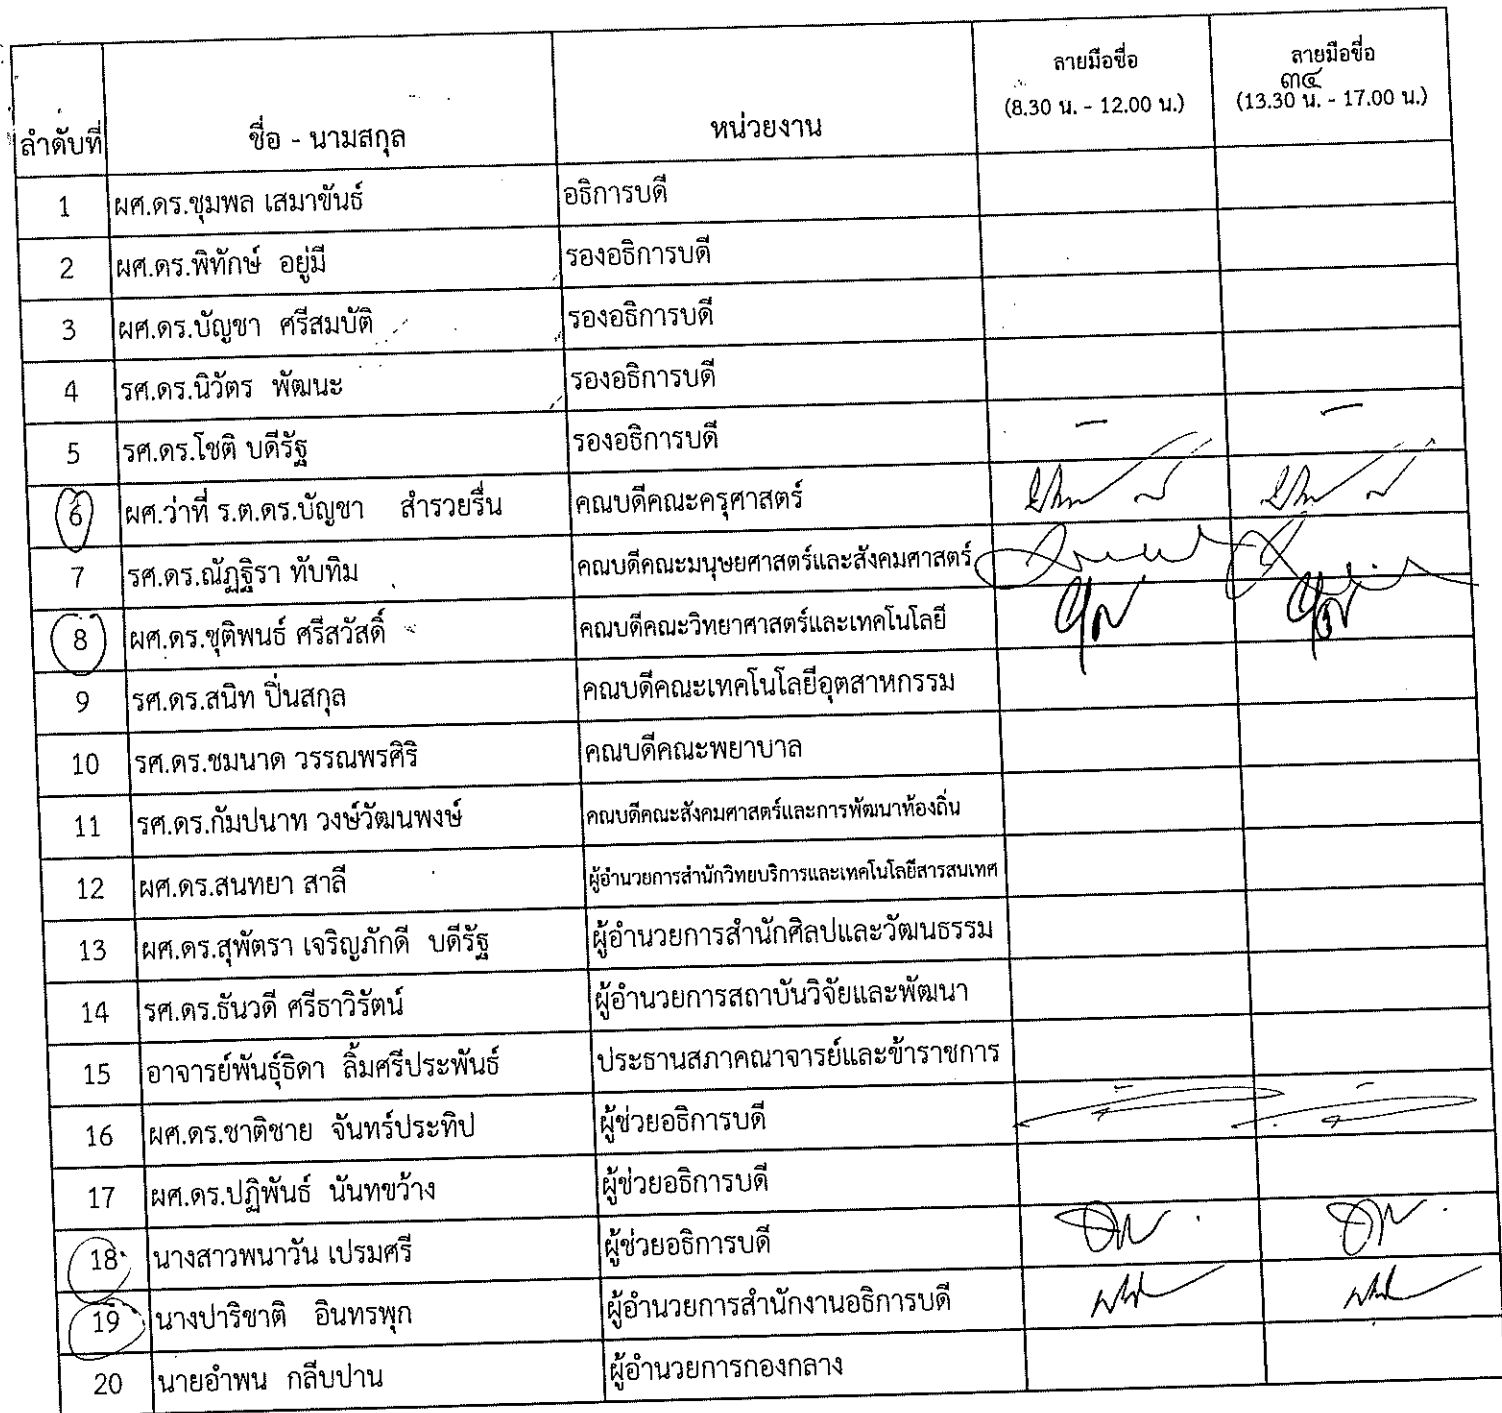 ลำดับที่ ชื่อ - นามสกุล หน่วยงาน ลายมือชื่อ (8.30 น. - 12.00 น.) ลายมือชื่อ ๓๔ (13.30 น. - 17.00 น.)
1 ผศ.ดร.ชุมพล เสมาขันธ์ อธิการบดี
2 ผศ.ดร.พิทักษ์ อยู่มี รองอธิการบดี
3 ผศ.ดร.บัญชา ศรีสมบัติ รองอธิการบดี
4 รศ.ดร.นิวัตร พัฒนะ รองอธิการบดี
5 รศ.ดร.โชติ บดีรัฐ รองอธิการบดี - -
6 ผศ.ว่าที่ ร.ต.ดร.บัญชา สำรวยรื่น คณบดีคณะครุศาสตร์
7 รศ.ดร.ณัฏฐิรา ทับทิม คณบดีคณะมนุษยศาสตร์และสังคมศาสตร์
8 ผศ.ดร.ชุติพนธ์ ศรีสวัสดิ์ คณบดีคณะวิทยาศาสตร์และเทคโนโลยี
9 รศ.ดร.สนิท ปิ่นสกุล คณบดีคณะเทคโนโลยีอุตสาหกรรม
10 รศ.ดร.ชมนาด วรรณพรศิริ คณบดีคณะพยาบาล
11 รศ.ดร.กัมปนาท วงษ์วัฒนพงษ์ คณบดีคณะสังคมศาสตร์และการพัฒนาท้องถิ่น
12 ผศ.ดร.สนทยา สาลี ผู้อำนวยการสำนักวิทยบริการและเทคโนโลยีสารสนเทศ
13 ผศ.ดร.สุพัตรา เจริญภักดี บดีรัฐ ผู้อำนวยการสำนักศิลปและวัฒนธรรม
14 รศ.ดร.ธันวดี ศรีธาวิรัตน์ ผู้อำนวยการสถาบันวิจัยและพัฒนา
15 อาจารย์พันธุ์ธิดา ลิ้มศรีประพันธ์ ประธานสภาคณาจารย์และข้าราชการ
16 ผศ.ดร.ชาติชาย จันทร์ประทิป ผู้ช่วยอธิการบดี
17 ผศ.ดร.ปฏิพันธ์ นันทขว้าง ผู้ช่วยอธิการบดี
18 นางสาวพนาวัน เปรมศรี ผู้ช่วยอธิการบดี
19 นางปาริชาติ อินทรพุก ผู้อำนวยการสำนักงานอธิการบดี
20 นายอำพน กลีบปาน ผู้อำนวยการกองกลาง